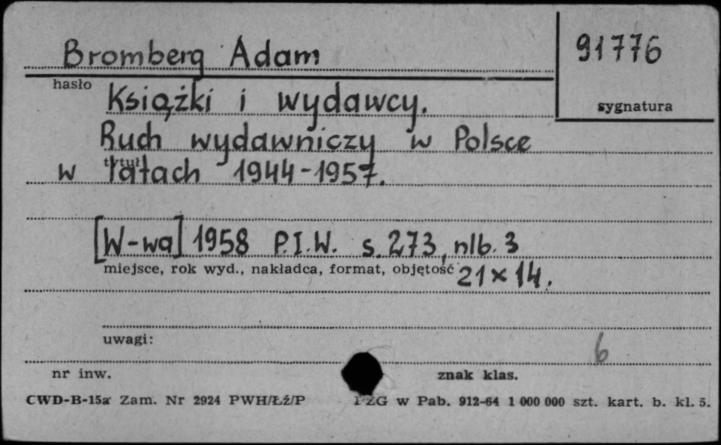 Bromberg Adam
91776
hasło
sygnatura
Książki i wydawcy.
Ruch wydawniczy w Polsce
tytuł
w latach 1944-1957.
[W-wa] 1958 P.I.W. s. 273, nlb. 3
miejsce, rok wyd., nakładca, format, objętość
21 x 14.
uwagi:
6
nr inw.
znak klas.
CWD-B-15a Zam. Nr 2924 PWH/Łź/P
PZG w Pab. 912-64 1 000 000 szt. kart. b. kl. 5.